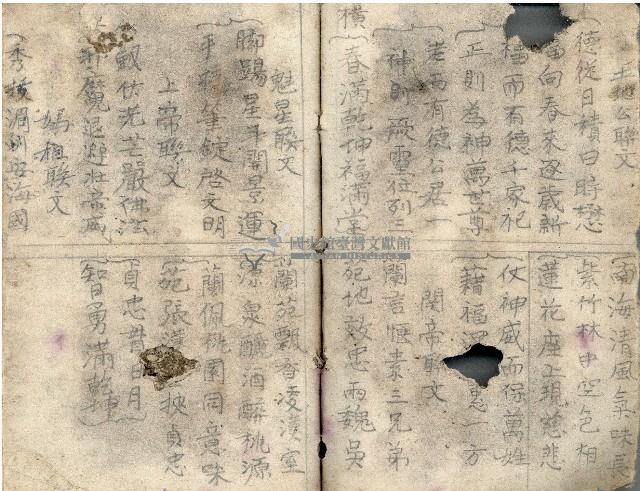 土地公聯文
德從日積白時懋
向春來逐歲新
福而有德千家祀
正則為神萬世尊
老而有德公君一
神則厥靈位列三
橫
春滿乾坤福滿堂
南海清風氣味長
紫竹林中空色相
蓮花座上現慈悲
仗神威而保萬姓
藉福 惠一方
関帝聯文
蘭言恆素三兄弟
死地效忠兩魏吳
魁星聯文
脚踢星斗開景運
手移筆錠啓文明
上帝聯文
劔佐光芒嚴
魔退避壯帝威
媽祖聯文
秀 湄洲安海國
蘭苑飄香凌漢室
源泉釃酒醉桃源
蘭侶桃園同意味
苑張 挾貞忠
貞忠昔日月
智勇滿乾
國史館臺灣文獻館
TAIWAN HISTORICA